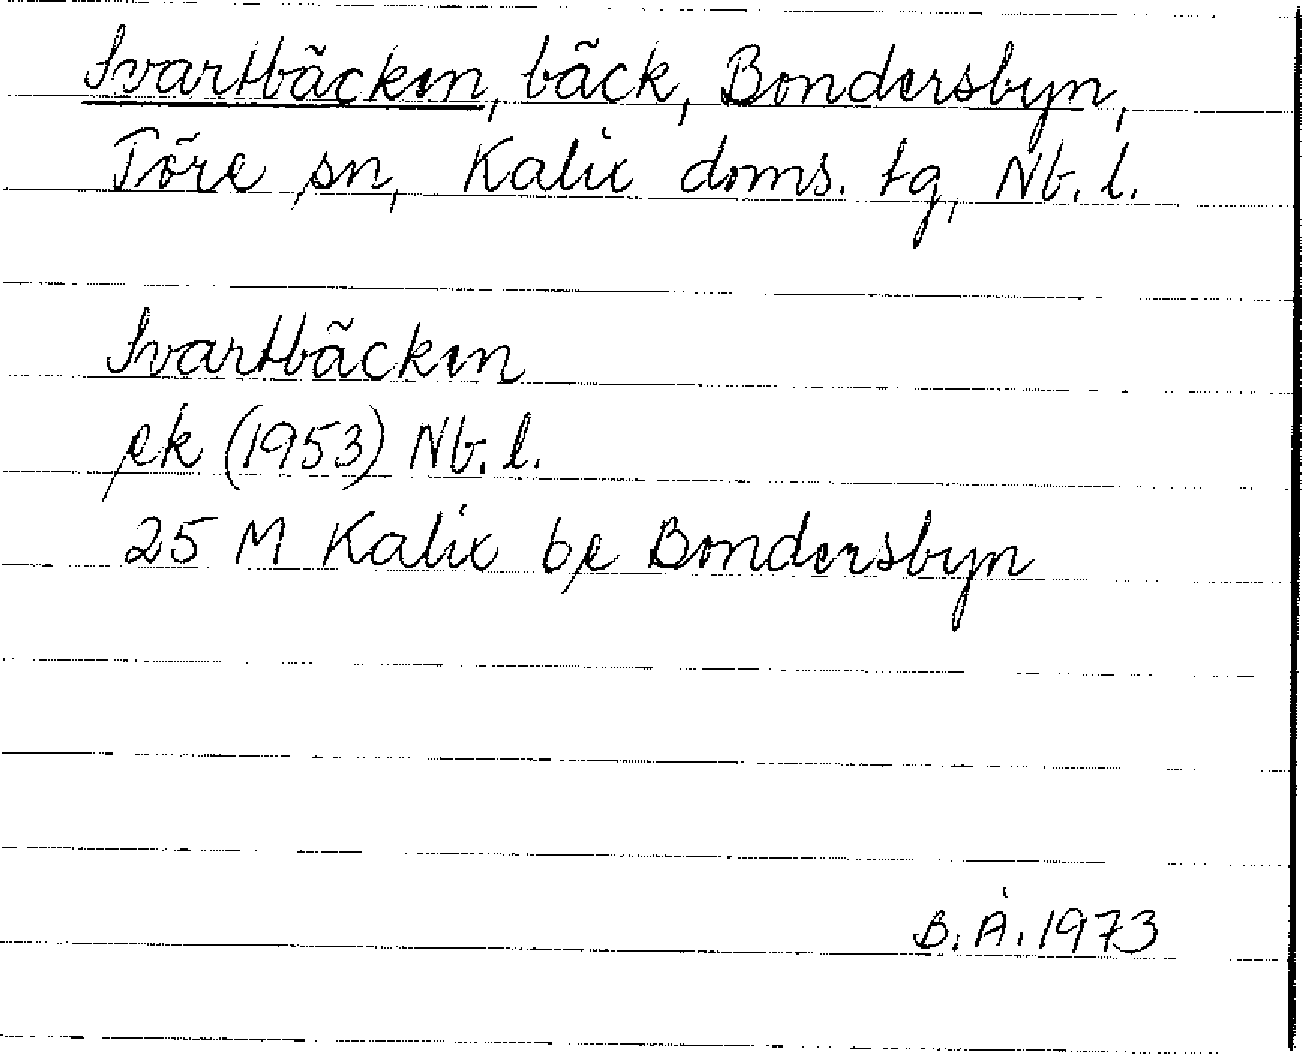 Svartbäcken, bäck, Bondersbyn,
Töre sn, Kalix doms. tg, Nb. l.
Svartbäcken
ek (1953) Nb. l.
25 M Kalix bl Bondersbyn
B. Å. 1973